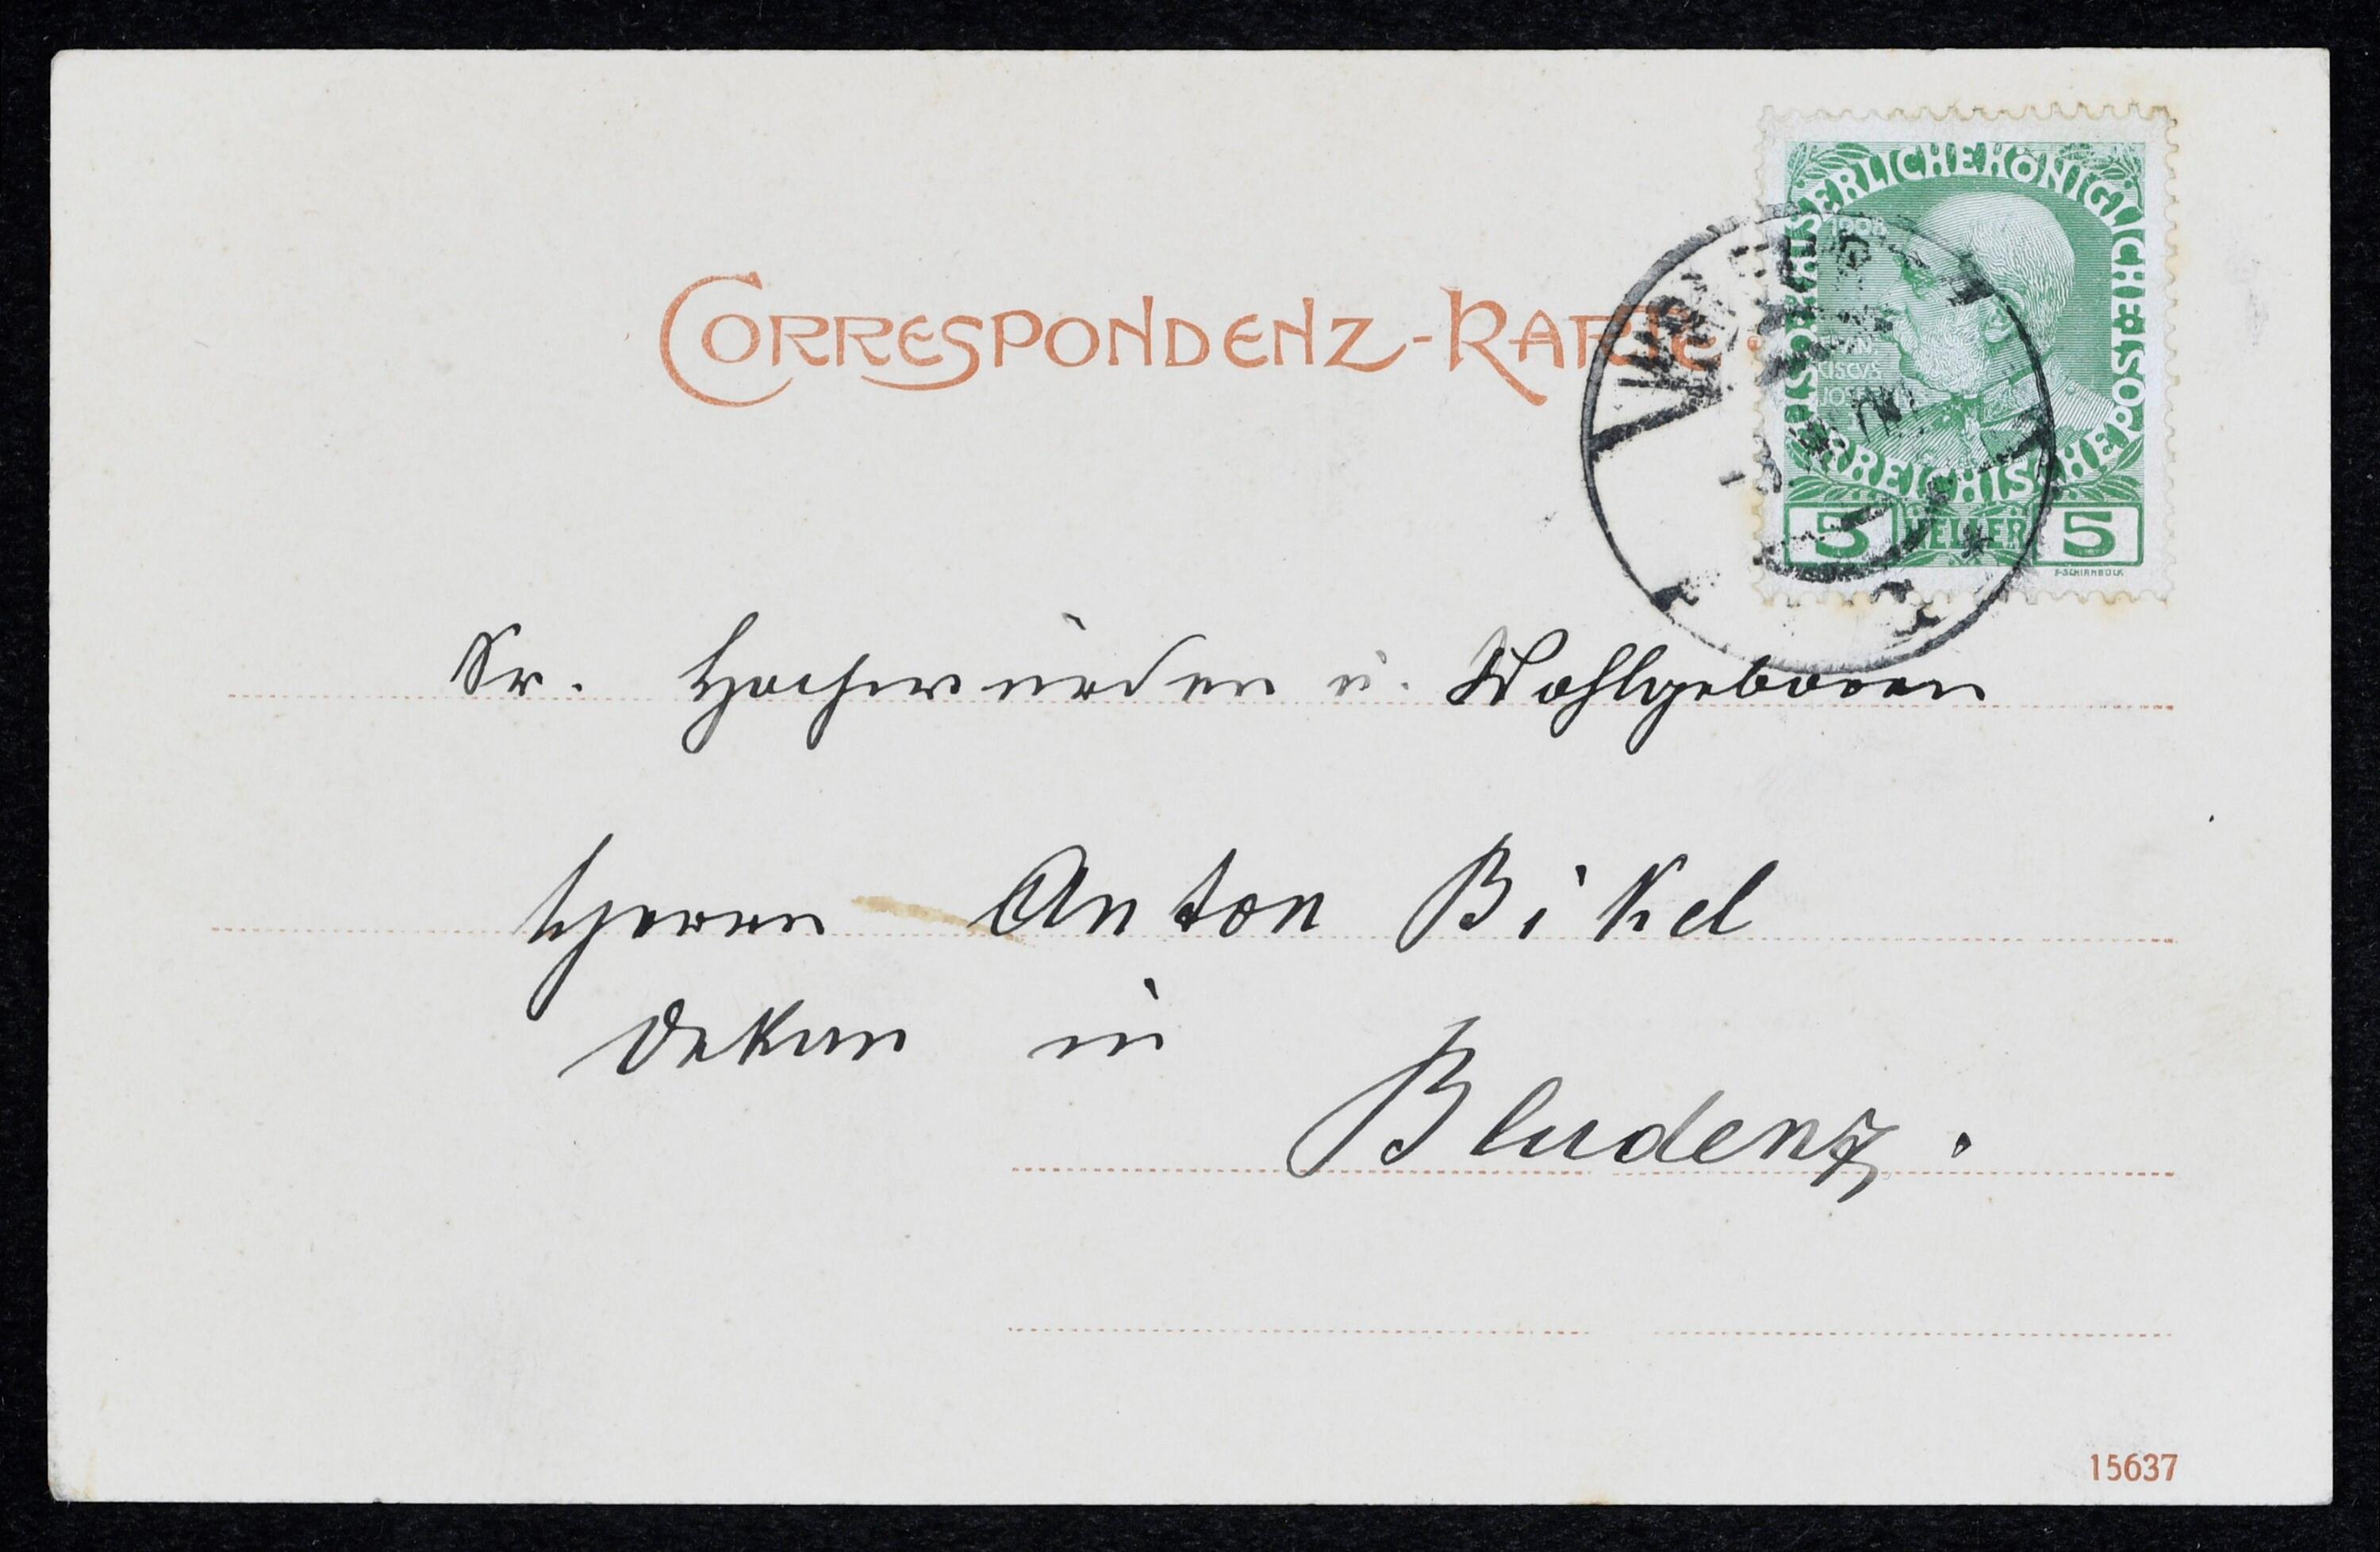 CORRESPONDENZ-KARTE.
KAISERLICHE KÖNIGLICHE ÖSTERREICHISCHE POST
1908
CISCVS
5 HELLER 5
F. SCHIRNBÖCK
Sr. Hochwürden u. Wohlgeboren
Herrn Anton Bikel
Dekan in
Bludenz.
15637